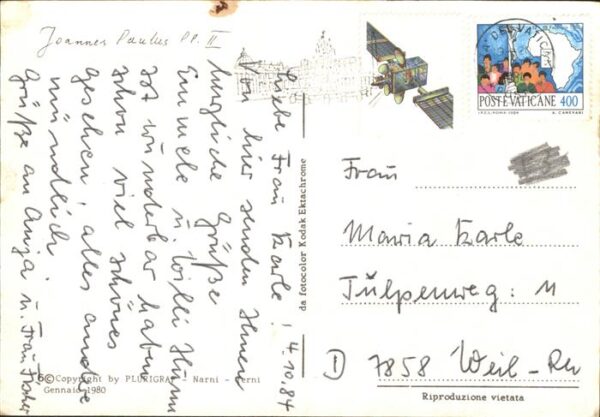 Joannes Paulus P.P. II
4.10.84
Liebe Frau Karle!
Von hier senden Ihnen
herzliche Grüße
Emmele u. Willi
ist wunderbar, haben
schon viel schönes
gesehen, alles andere
mündlich.
Grüße an Anja u. Frau
POSTE VATICANE 400
I.P.Z.S. ROMA 1984
Frau
Maria Karle
Tulpenweg: 11
D 7858 Weil-
da fotocolor Kodak Ektachrome
© Copyright by PLURIGRAF - Narni - Terni
Gennaio 1980
Riproduzione vietata